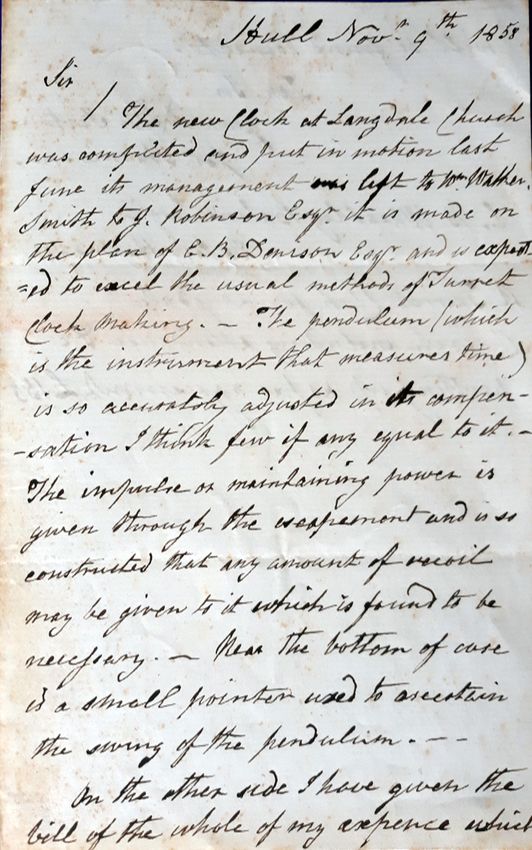 Hull Novr 9th 1858
Sir
The new Clock at Langdale Church
was completed and put in motion last
June its management was left to Wm Walker
Smith to J. Robinson Esqr it is made on
the plan of E. B. Denison Esqr and is expect
=ed to excel the usual methods of Turret
Clock Making. — The pendulum (which
is the instrument that measures time)
is so accurately adjusted in its compen-
-sation I think few if any equal to it. —
The impulse or maintaining power is
given through the escapement and is so
constructed that any amount of recoil
may be given to it which is found to be
necessary. — Near the bottom of case
is a small pointer used to ascertain
the swing of the pendulum. — —
On the other side I have given the
bill of the whole of my expence which